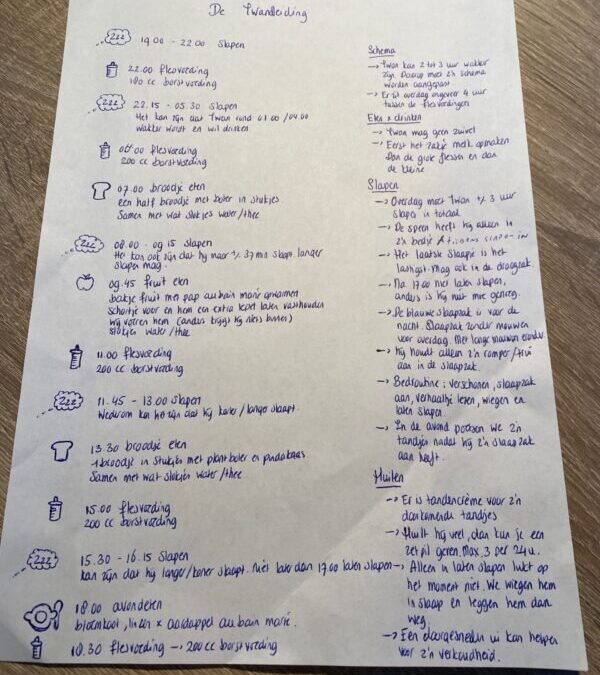 De Twanleiding
19.00 - 22.00 slapen
22.00 flesvoeding
180 cc borstvoeding
22.15 - 05.30 slapen
Het kan zijn dat Twan rond 01.00 / 04.00
wakker wordt en wil drinken
06.00 flesvoeding
200 cc borstvoeding
07.00 broodje eten
een half broodje met boter in stukjes
Samen met wat slokjes water/thee
08.00 - 09.15 slapen
Het kan ook zijn dat hij maar +/- 37 min slaapt. langer
slapen mag.
09.45 fruit eten
bakje fruit met pap au bain marie opwarmen
schortje voor en hem een extra lepel laten vasthouden
wij voeren hem (anders krijgt hij niets binnen)
slokjes water/thee
11.00 flesvoeding
200 cc borstvoeding
11.45 - 13.00 slapen
Wederom kan het zijn dat hij korter/langer slaapt.
13.30 broodje eten
1 broodje in stukjes met plantboter en pindakaas
Samen met wat slokjes water/thee
15.00 flesvoeding
200 cc borstvoeding
15.30 - 16.15 slapen
kan zijn dat hij langer/korter slaapt. niet later dan 17.00 laten slapen
18.00 avondeten
bloemkool, linzen x aardappel au bain marie.
18.30 flesvoeding → 200 cc borstvoeding
Schema
→ Twan kan 2 tot 3 uur wakker
zijn. Daarop moet z'n schema
worden aangepast
→ Er zit overdag ongeveer 4 uur
tussen de flesvoedingen
Eten x drinken
→ Twan mag geen zuivel
→ Eerst het zakje melk opmaken
Dan de grote flessen en dan
de kleine
Slapen
→ Overdag moet Twan +/- 3 uur
slapen in totaal
→ De speen heeft hij alleen in
z'n bedje
→ Het laatste slaapje is het
langst. Mag ook in de draagzak.
→ Na 17.00 niet laten slapen,
anders is hij niet moe genoeg.
→ De blauwe slaapzak is voor de
nacht. Slaapzak zonder mouwen
voor overdag. Met lange mouwen eronder
→ Hij houdt alleen z'n romper/trui
aan in de slaapzak.
→ Bedroutine: verschonen, slaapzak
aan, verhaaltje lezen, wiegen en
laten slapen.
→ In de avond poetsen we z'n
tandjes nadat hij z'n slaapzak
aan heeft.
Huilen
→ Er is tandencrème voor z'n
doorkomende tandjes
→ Huilt hij veel, dan kun je een
zetpil geven. max. 3 per 24 u.
→ Alleen in laten slapen lukt op
het moment niet. We wiegen hem
in slaap en leggen hem dan
weg.
→ Een doorgesneden ui kan helpen
voor z'n verkoudheid.